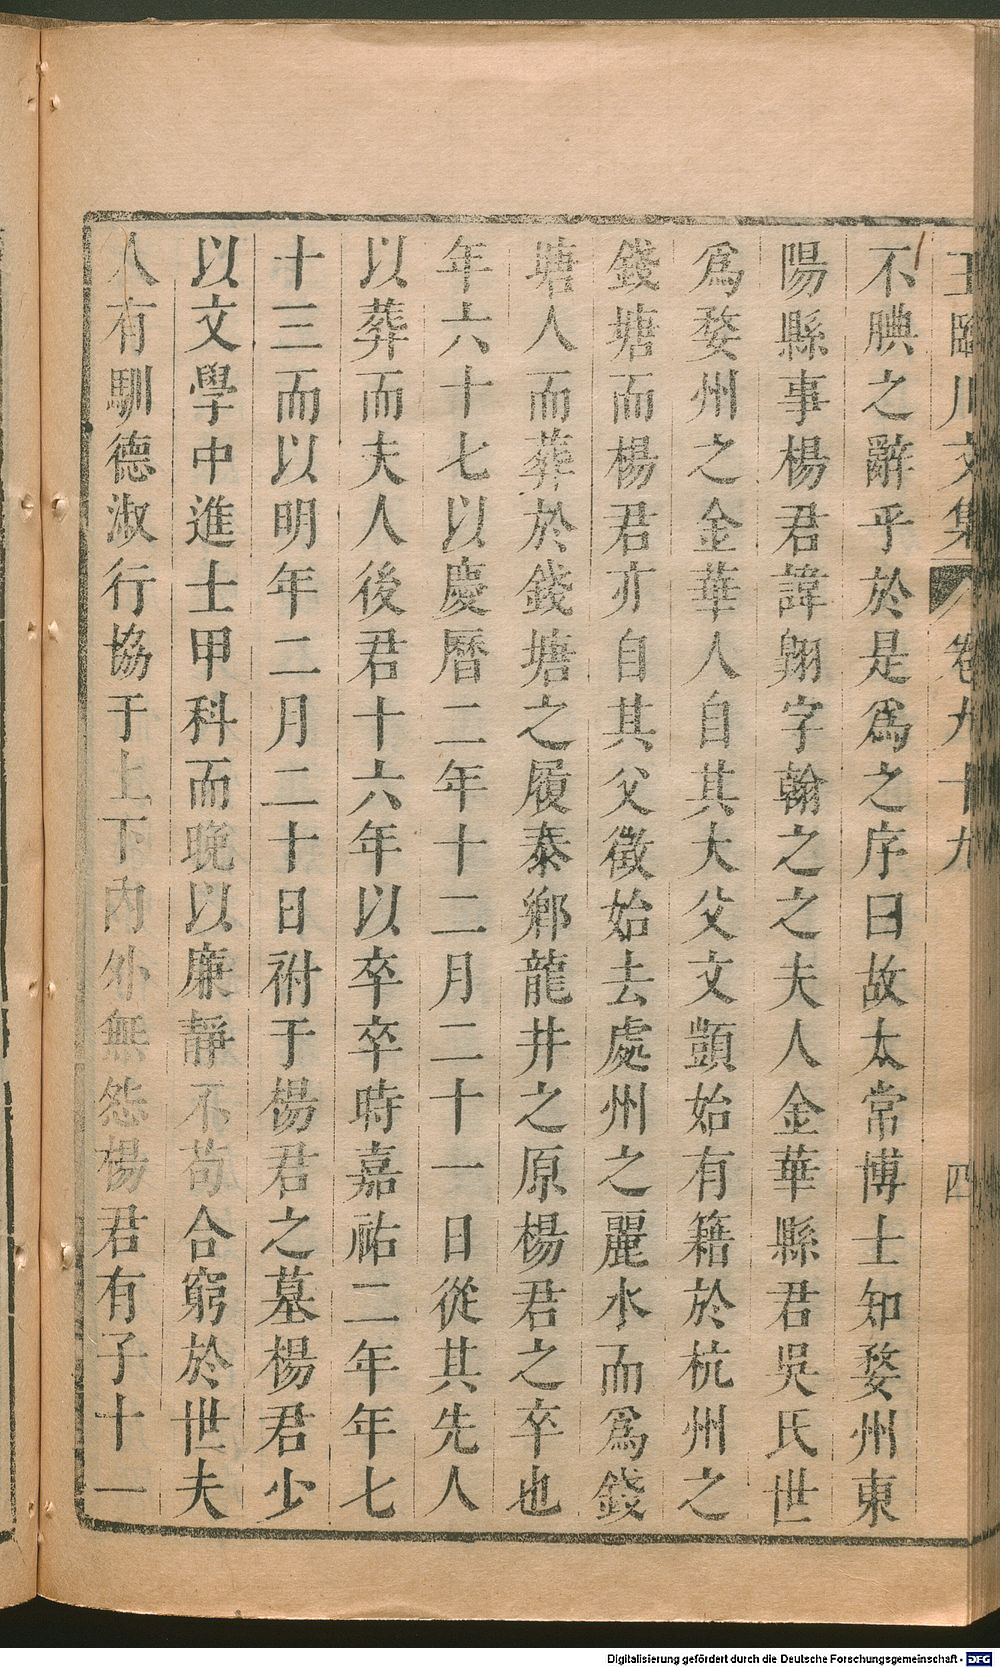 王臨川文集 卷九十九 四
不腆之辭乎於是爲之序曰故太常博士知婺州東
陽縣事楊君諱翱字翰之之夫人金華縣君吳氏世
爲婺州之金華人自其大父文顗始有籍於杭州之
錢塘而楊君亦自其父徵始去處州之麗水而爲錢
塘人而葬於錢塘之履泰鄉龍井之原楊君之卒也
年六十七以慶曆二年十二月二十一日從其先人
以葬而夫人後君十六年以卒卒時嘉祐二年年七
十三而以明年二月二十日祔于楊君之墓楊君少
以文學中進士甲科而晚以廉靜不苟合窮於世夫
人有馴德淑行協于上下內外無怨楊君有子十一
Digitalisierung gefördert durch die Deutsche Forschungsgemeinschaft - DFG